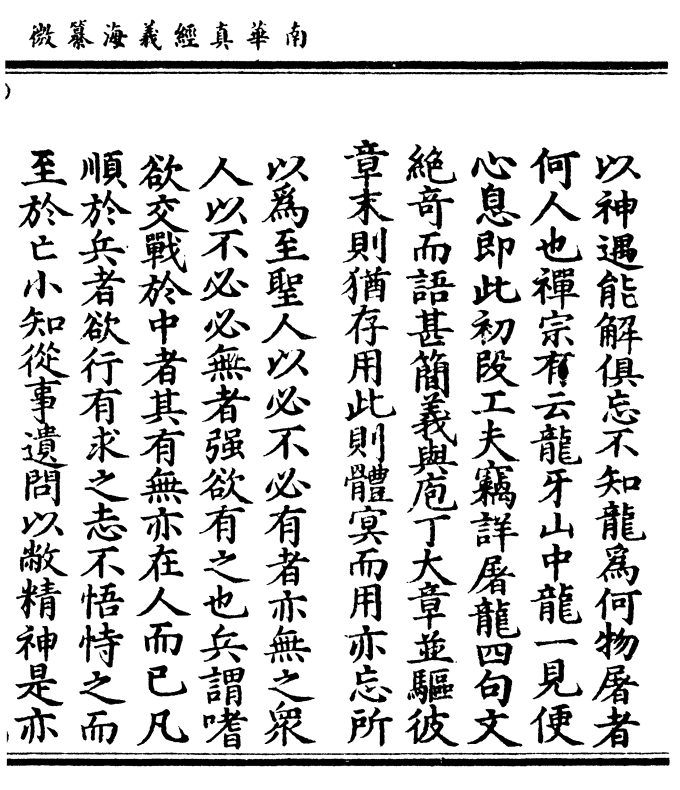 南華真經義海纂微
以神遇能解俱忘不知龍為何物屠者
何人也禪宗有云龍牙山中龍一見便
心息即此初段工夫竊詳屠龍四句文
絶竒而語甚簡義與庖丁大章並驅彼
章末則猶存用此則體冥而用亦忘所
以為至聖人以必不必有者亦無之衆
人以不必必無者强欲有之也兵謂嗜
欲交戰於中者其有無亦在人而已凡
順於兵者欲行有求之志不悟恃之而
至於亡小知從事遺問以敝精神是亦